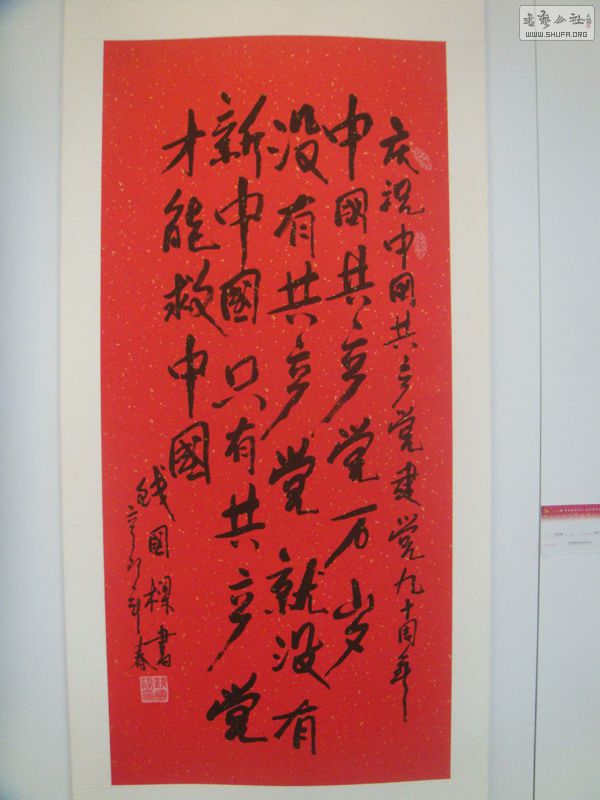 庆祝中国共产党建党九十周年
中國共产党万岁
没有共产党就没有
新中國只有共产党
才能救中國
钱国樑書
辛卯年春
書藝公社
WWW.SHUFA.ORG